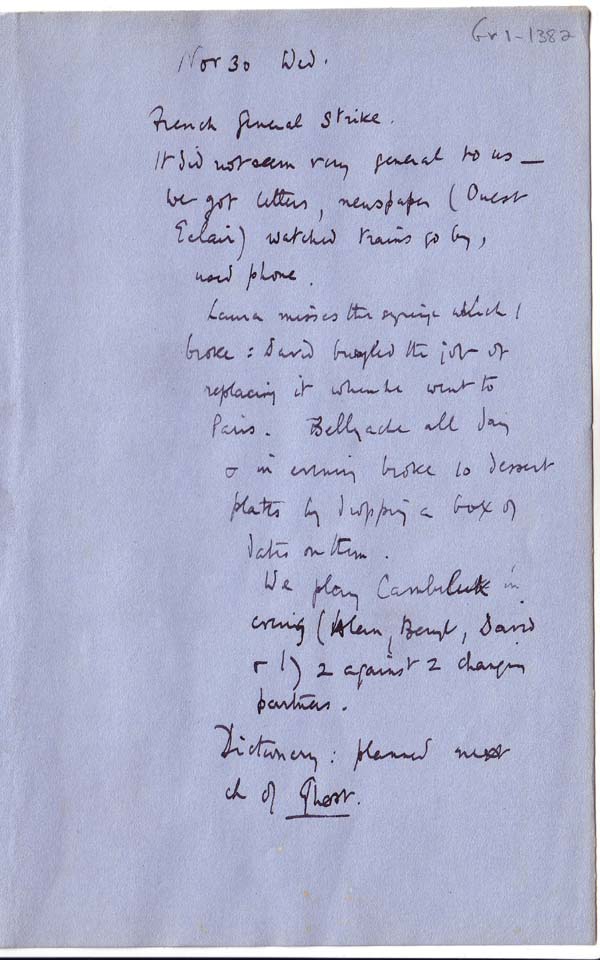 Gr 1-1382
Nov 30 Wed.
French general strike.
It did not seem very general to us —
we got letters, newspaper (Ouest
Eclair) watched trains go by,
used phone.
Laura misses the syringe which I
broke: David bungled the job of
replacing it when he went to
Paris. Bellyache all day
& in evening broke 10 dessert
plates by dropping a box of
dates on them.
We play in
evening (Alan, Beryl, David
& I) 2 against 2 changing
partners.
Dictionary: planned next
ch of Ghost.